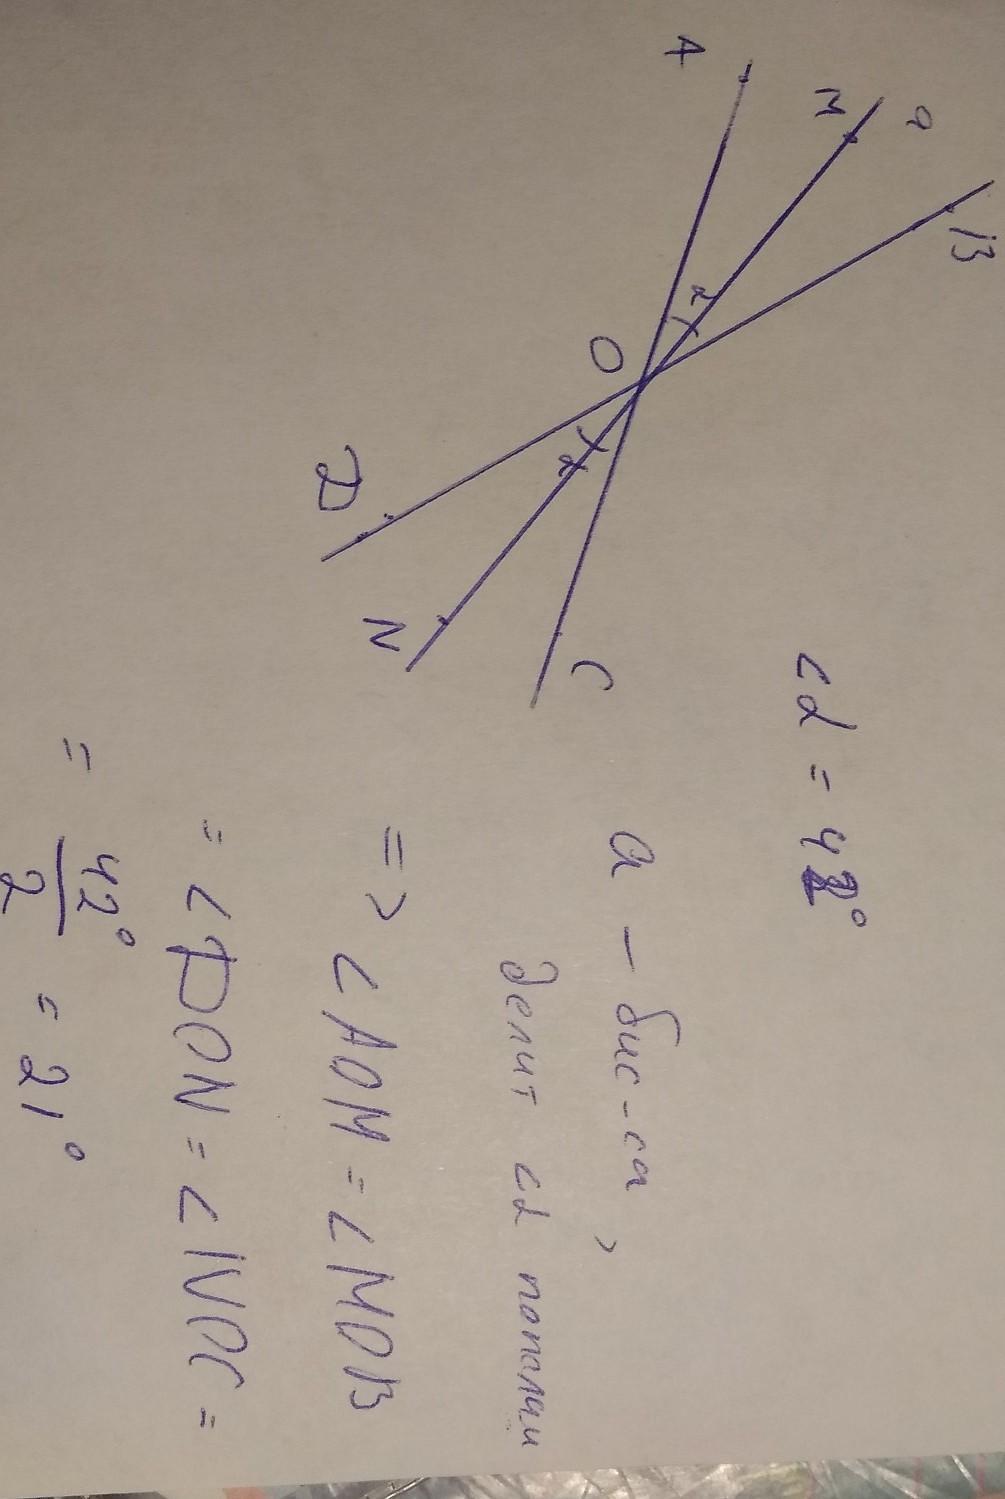 A
M
a
B
α
O
α
D
N
C
∠α = 42°
a – бис-са,
делит ∠α пополам
=> ∠AOM = ∠MOB
= ∠DON = ∠NOC =
= 42°/2 = 21°